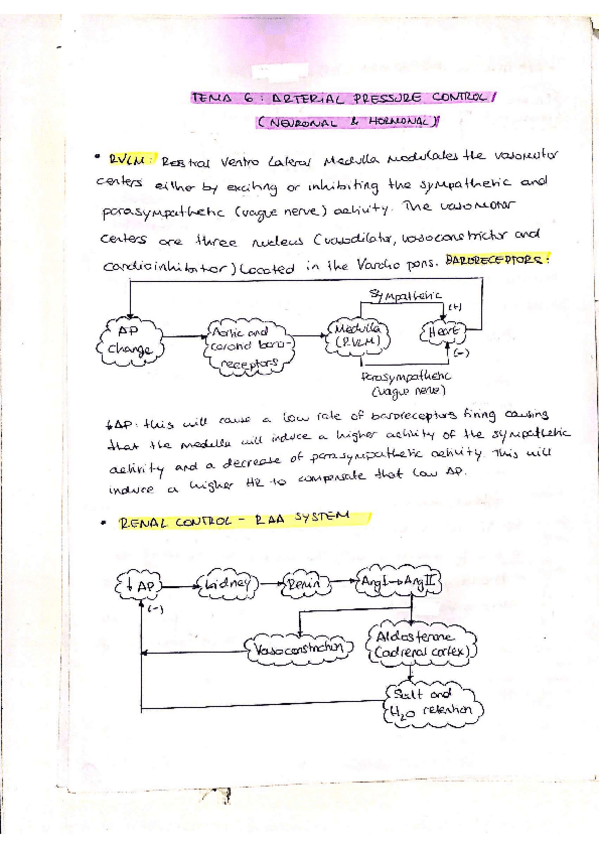 TEMA 6: ARTERIAL PRESSURE CONTROL
(NEURONAL & HORMONAL)
• RVLM: Rostral Ventro Lateral Medulla modulates the vasomotor
centers either by exciting or inhibiting the sympathetic and
parasympathetic (vague nerve) activity. The vasomotor
centers are three nucleus (vasodilator, vasoconstrictor and
cardioinhibitor) located in the Varolio pons. BARORECEPTORS:
Sympathetic
(+)
AP
change
Aortic and
carotid baro-
receptors
Medulla
(RVLM)
Heart
(-)
Parasympathetic
(vague nerve)
↓AP: this will cause a low rate of baroreceptors firing causing
that the medulla will induce a higher activity of the sympathetic
activity and a decrease of parasympathetic activity. This will
induce a higher HR to compensate that low AP.
• RENAL CONTROL - RAA SYSTEM
↓ AP
kidney
Renin
Ang I → Ang II
(-)
Vasoconstriction
Aldosterone
(adrenal cortex)
Salt and
H2O retention